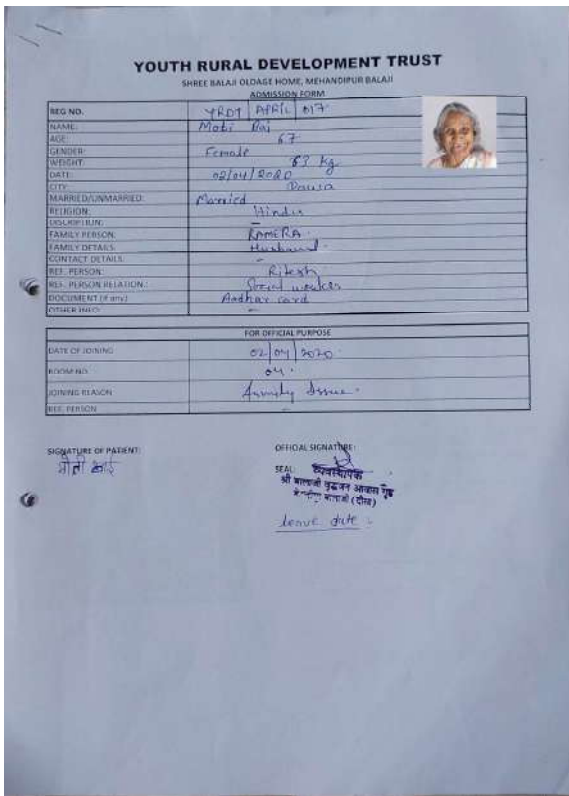 YOUTH RURAL DEVELOPMENT TRUST
SHREE BALAJI OLDAGE HOME, MEHANDIPUR BALAJI
ADMISSION FORM
REG NO. YRDT APRIL 017
NAME: Moti Bai
AGE: 67
GENDER: Female
WEIGHT: 63 kg
DATE: 02/04/2020
CITY: Dausa
MARRIED/UNMARRIED: Married
RELIGION: Hindu
DISCRIPTION: -
FAMILY PERSON: RAMERA.
FAMILY DETAILS: Husband.
CONTACT DETAILS: -
REF. PERSON: Ritesh
REF. PERSON RELATION: Social worker
DOCUMENT (if any) Aadhar card
OTHER INFO: -
FOR OFFICIAL PURPOSE
DATE OF JOINING 02/04/2020.
ROOM NO. 04.
JOINING REASON family Issue.
REF. PERSON -
SIGNATURE OF PATIENT:
मोती बाई
OFFICIAL SIGNATURE:
SEAL: व्यवस्थापक
श्री बालाजी वृद्धजन आवास गृह
बालाजी (दौसा)
Leave date :